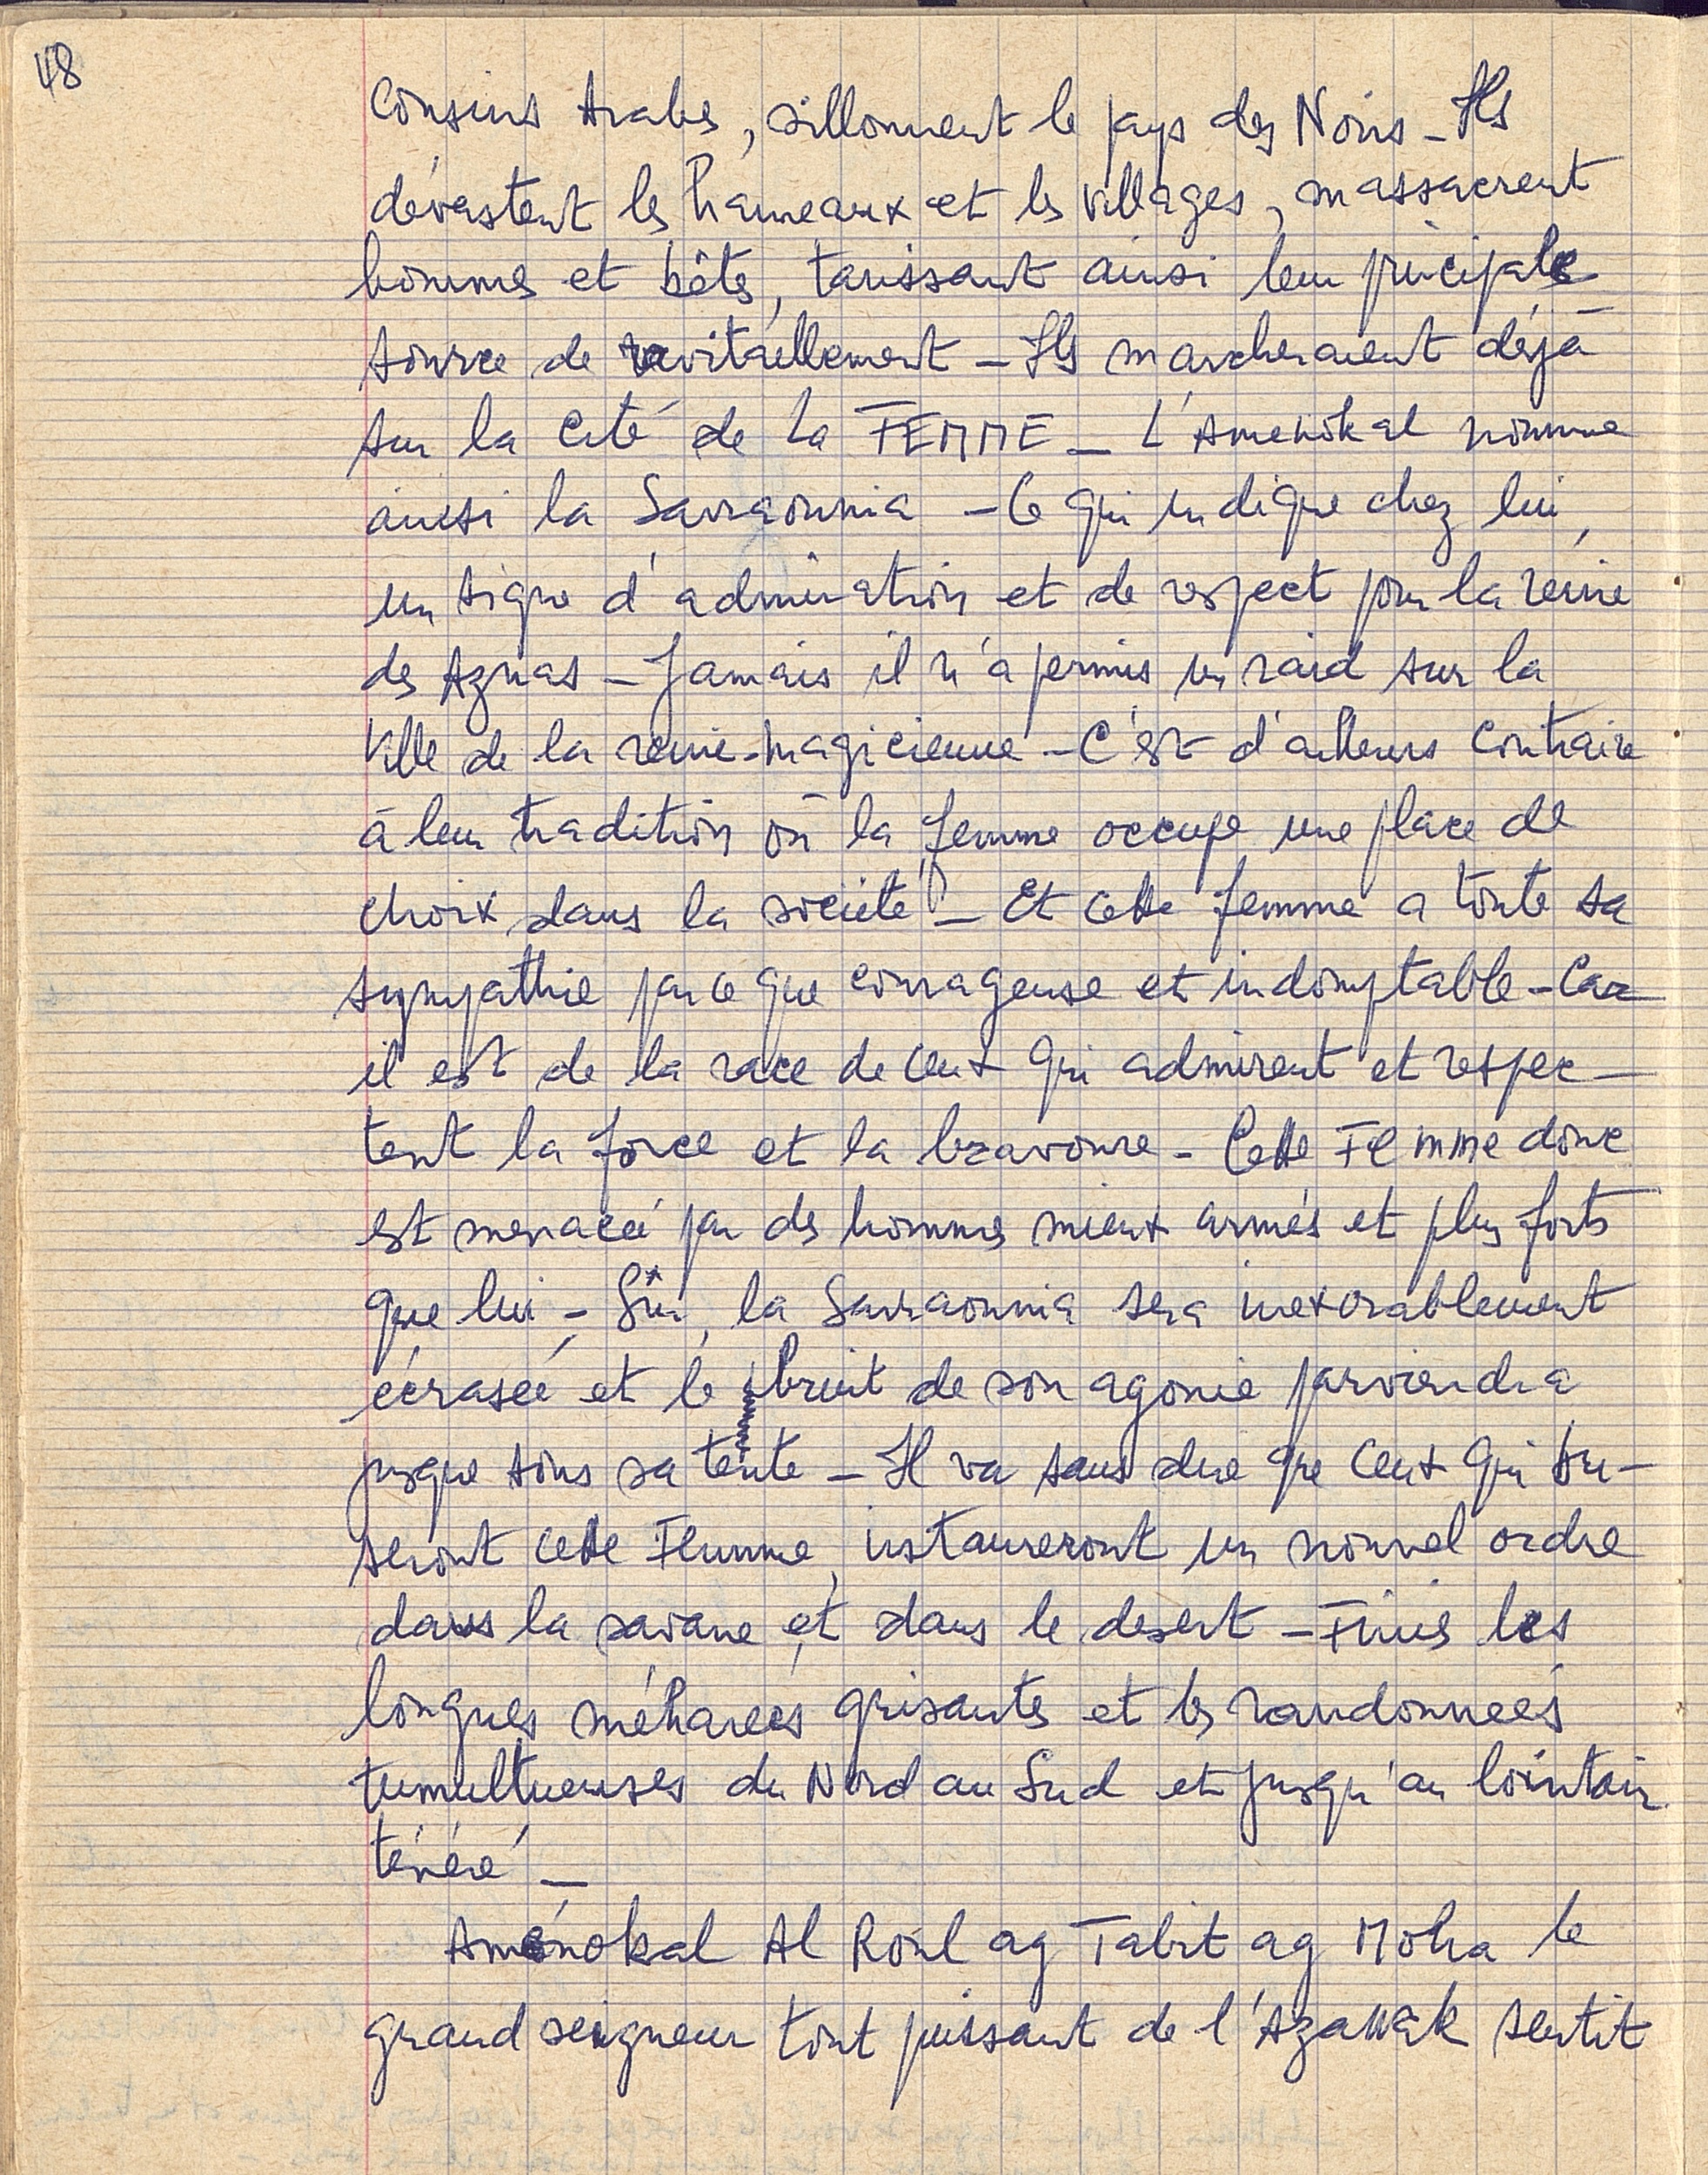 48
Cousins Arabes, sillonnent le pays des Noirs _ Ils
dévastent les hameaux et les villages, massacrent
hommes et bêtes, tarissant ainsi leur principale
source de ravitaillement _ Ils marcheraient déjà
sur la cité de la FEMME _ L'Amenokal nomme
ainsi la Sarraounia _ Ce qui indique chez lui,
un signe d'admiration et de respect pour la reine
des Aznas _ Jamais il n'a permis un raid sur la
Ville de la reine-magicienne _ C'est d'ailleurs contraire
à leur tradition où la femme occupe une place de
choix dans la société _ Et cette femme a toute sa
sympathie parce que courageuse et indomptable _ Car
il est de la race de ceux qui admirent et respec_
tent la force et la bravoure _ Cette Femme donc
est menacée par des hommes mieux armés et plus forts
que lui _ Sûr, la Sarraounia sera inexorablement
écrasée et le bruit de son agonie parviendra
jusque sous sa tente _ Il va sans dire que ceux qui bri_
seront cette Femme, instaureront un nouvel ordre
dans la savane et dans le desert _ Finies les
longues méharées grisantes et les randonnées
tumultueuses du Nord au Sud et jusqu'au lointain
ténéré _
Aménokal Al Roul ag Tabit ag Moha le
grand seigneur tout puissant de l'Azawak sentit